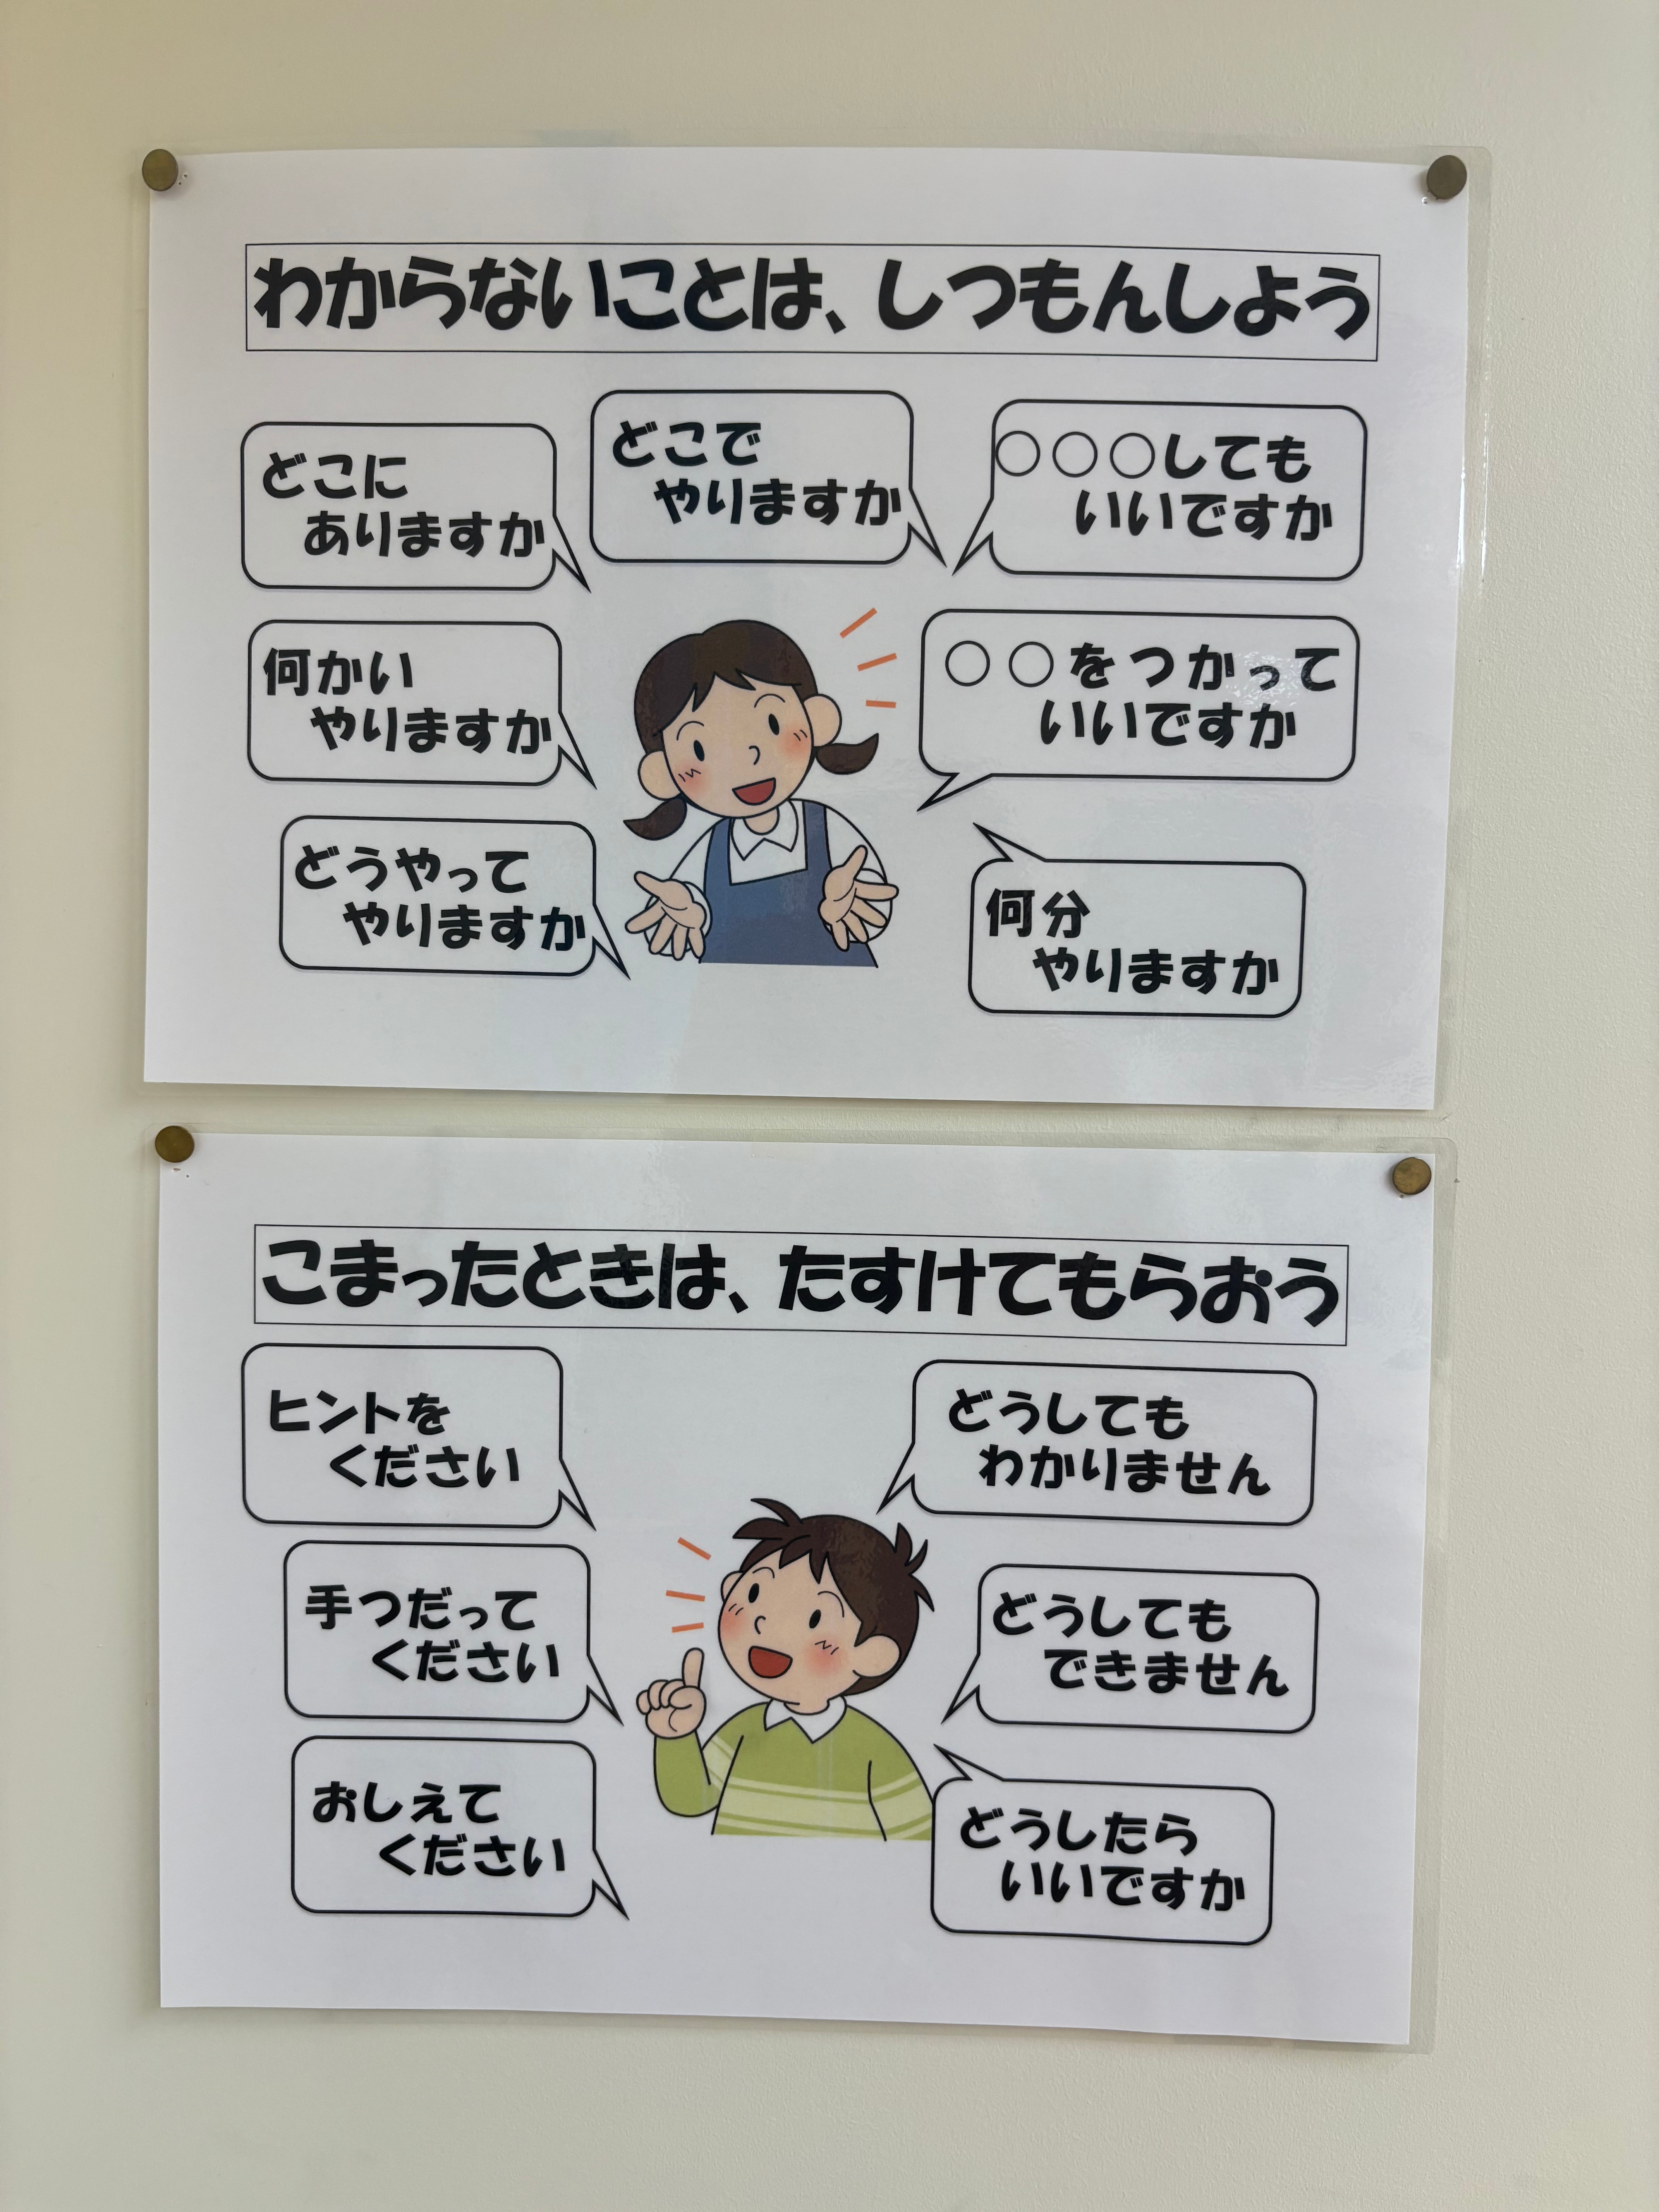 わからないことは、しつもんしよう
どこに
ありますか
どこで
やりますか
○○○しても
いいですか
何かい
やりますか
○○をつかって
いいですか
どうやって
やりますか
何分
やりますか
こまったときは、たすけてもらおう
ヒントを
ください
どうしても
わかりません
手つだって
ください
どうしても
できません
おしえて
ください
どうしたら
いいですか